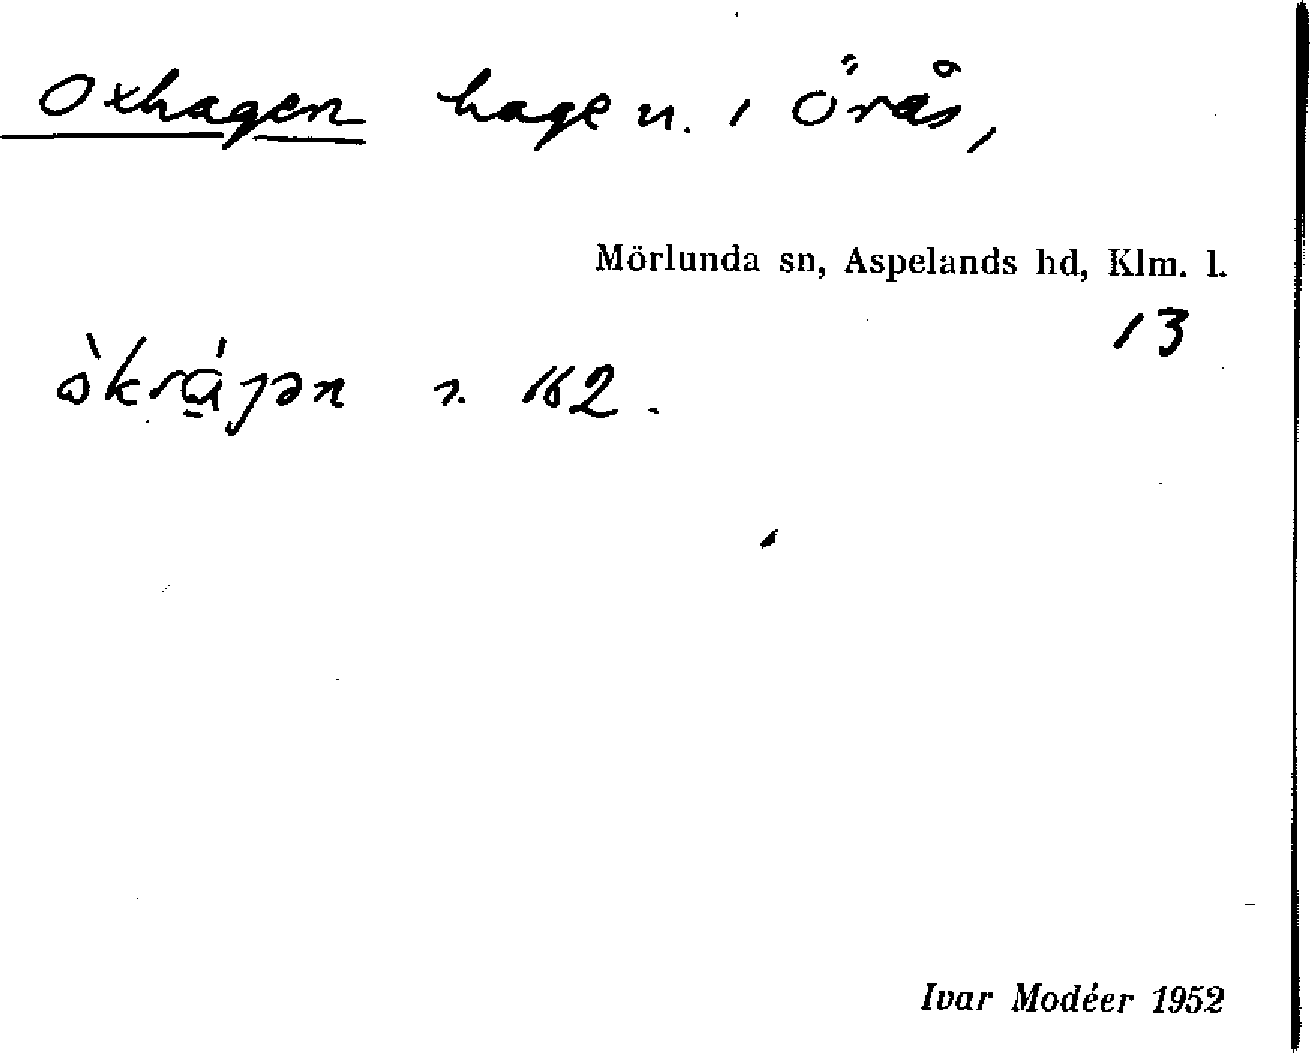 Oxhagen hage n. i Örås,
Mörlunda sn, Aspelands hd, Klm. l.
13
162.
Ivar Modéer 1952